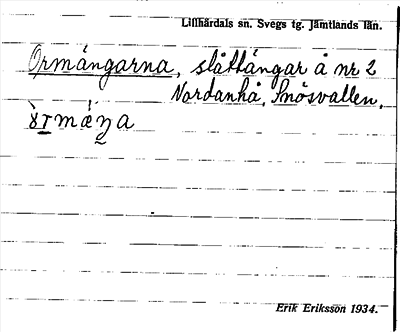 Lillhärdals sn. Svegs tg. Jämtlands län.
Ormängarna, slåttängar å nr 2
Nordanhå, Snösvallen.
Erik Eriksson 1934.